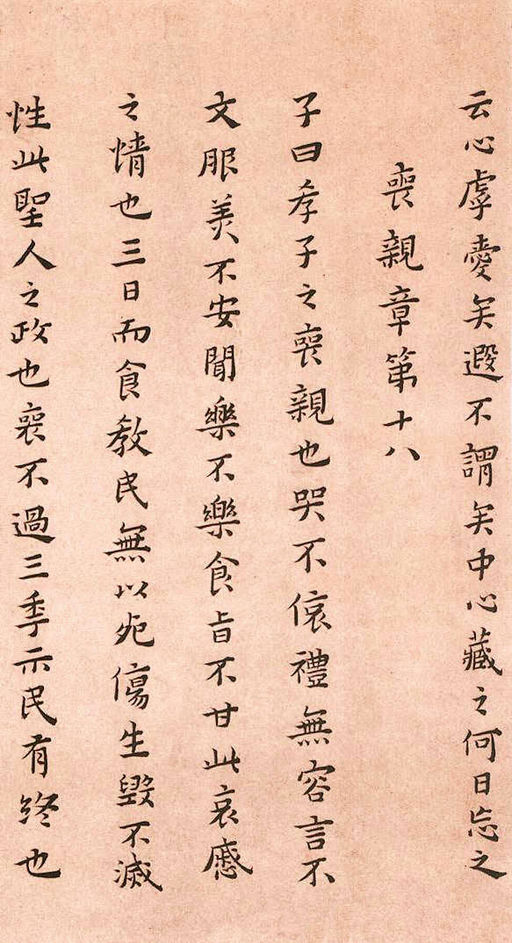 云心虖愛矣遐不謂矣中心藏之何日忘之
喪親章第十八
子曰孝子之喪親也哭不偯禮無容言不
文服美不安聞樂不樂食旨不甘此哀慼
之情也三日而食教民無以死傷生毀不滅
性此聖人之政也喪不過三年示民有終也